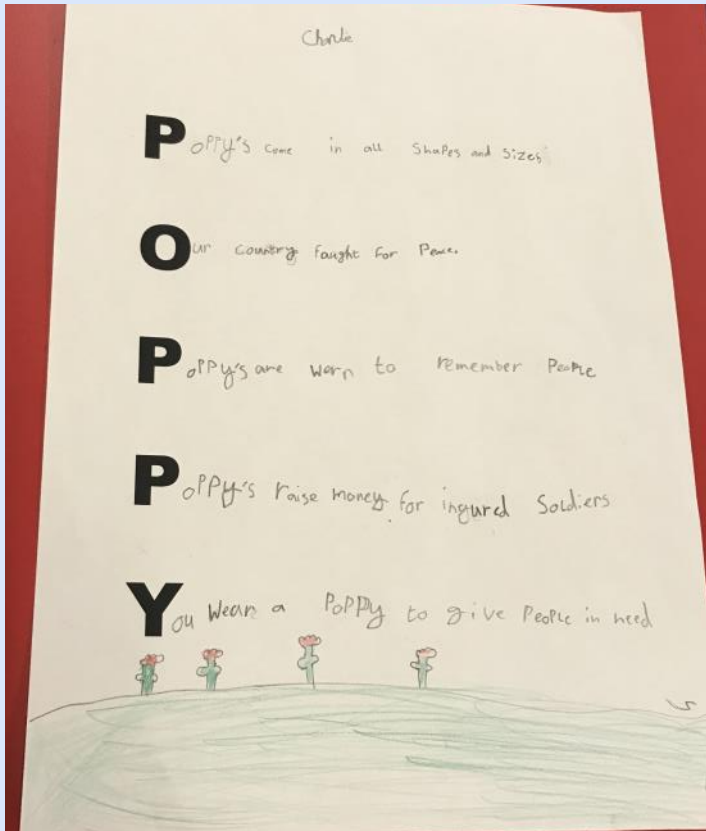 Charlie
Poppy's come in all shapes and sizes
Our country faught for Peace.
Poppy's are worn to remember People
Poppy's raise money for ingured Soldiers
You Wear a Poppy to give People in need